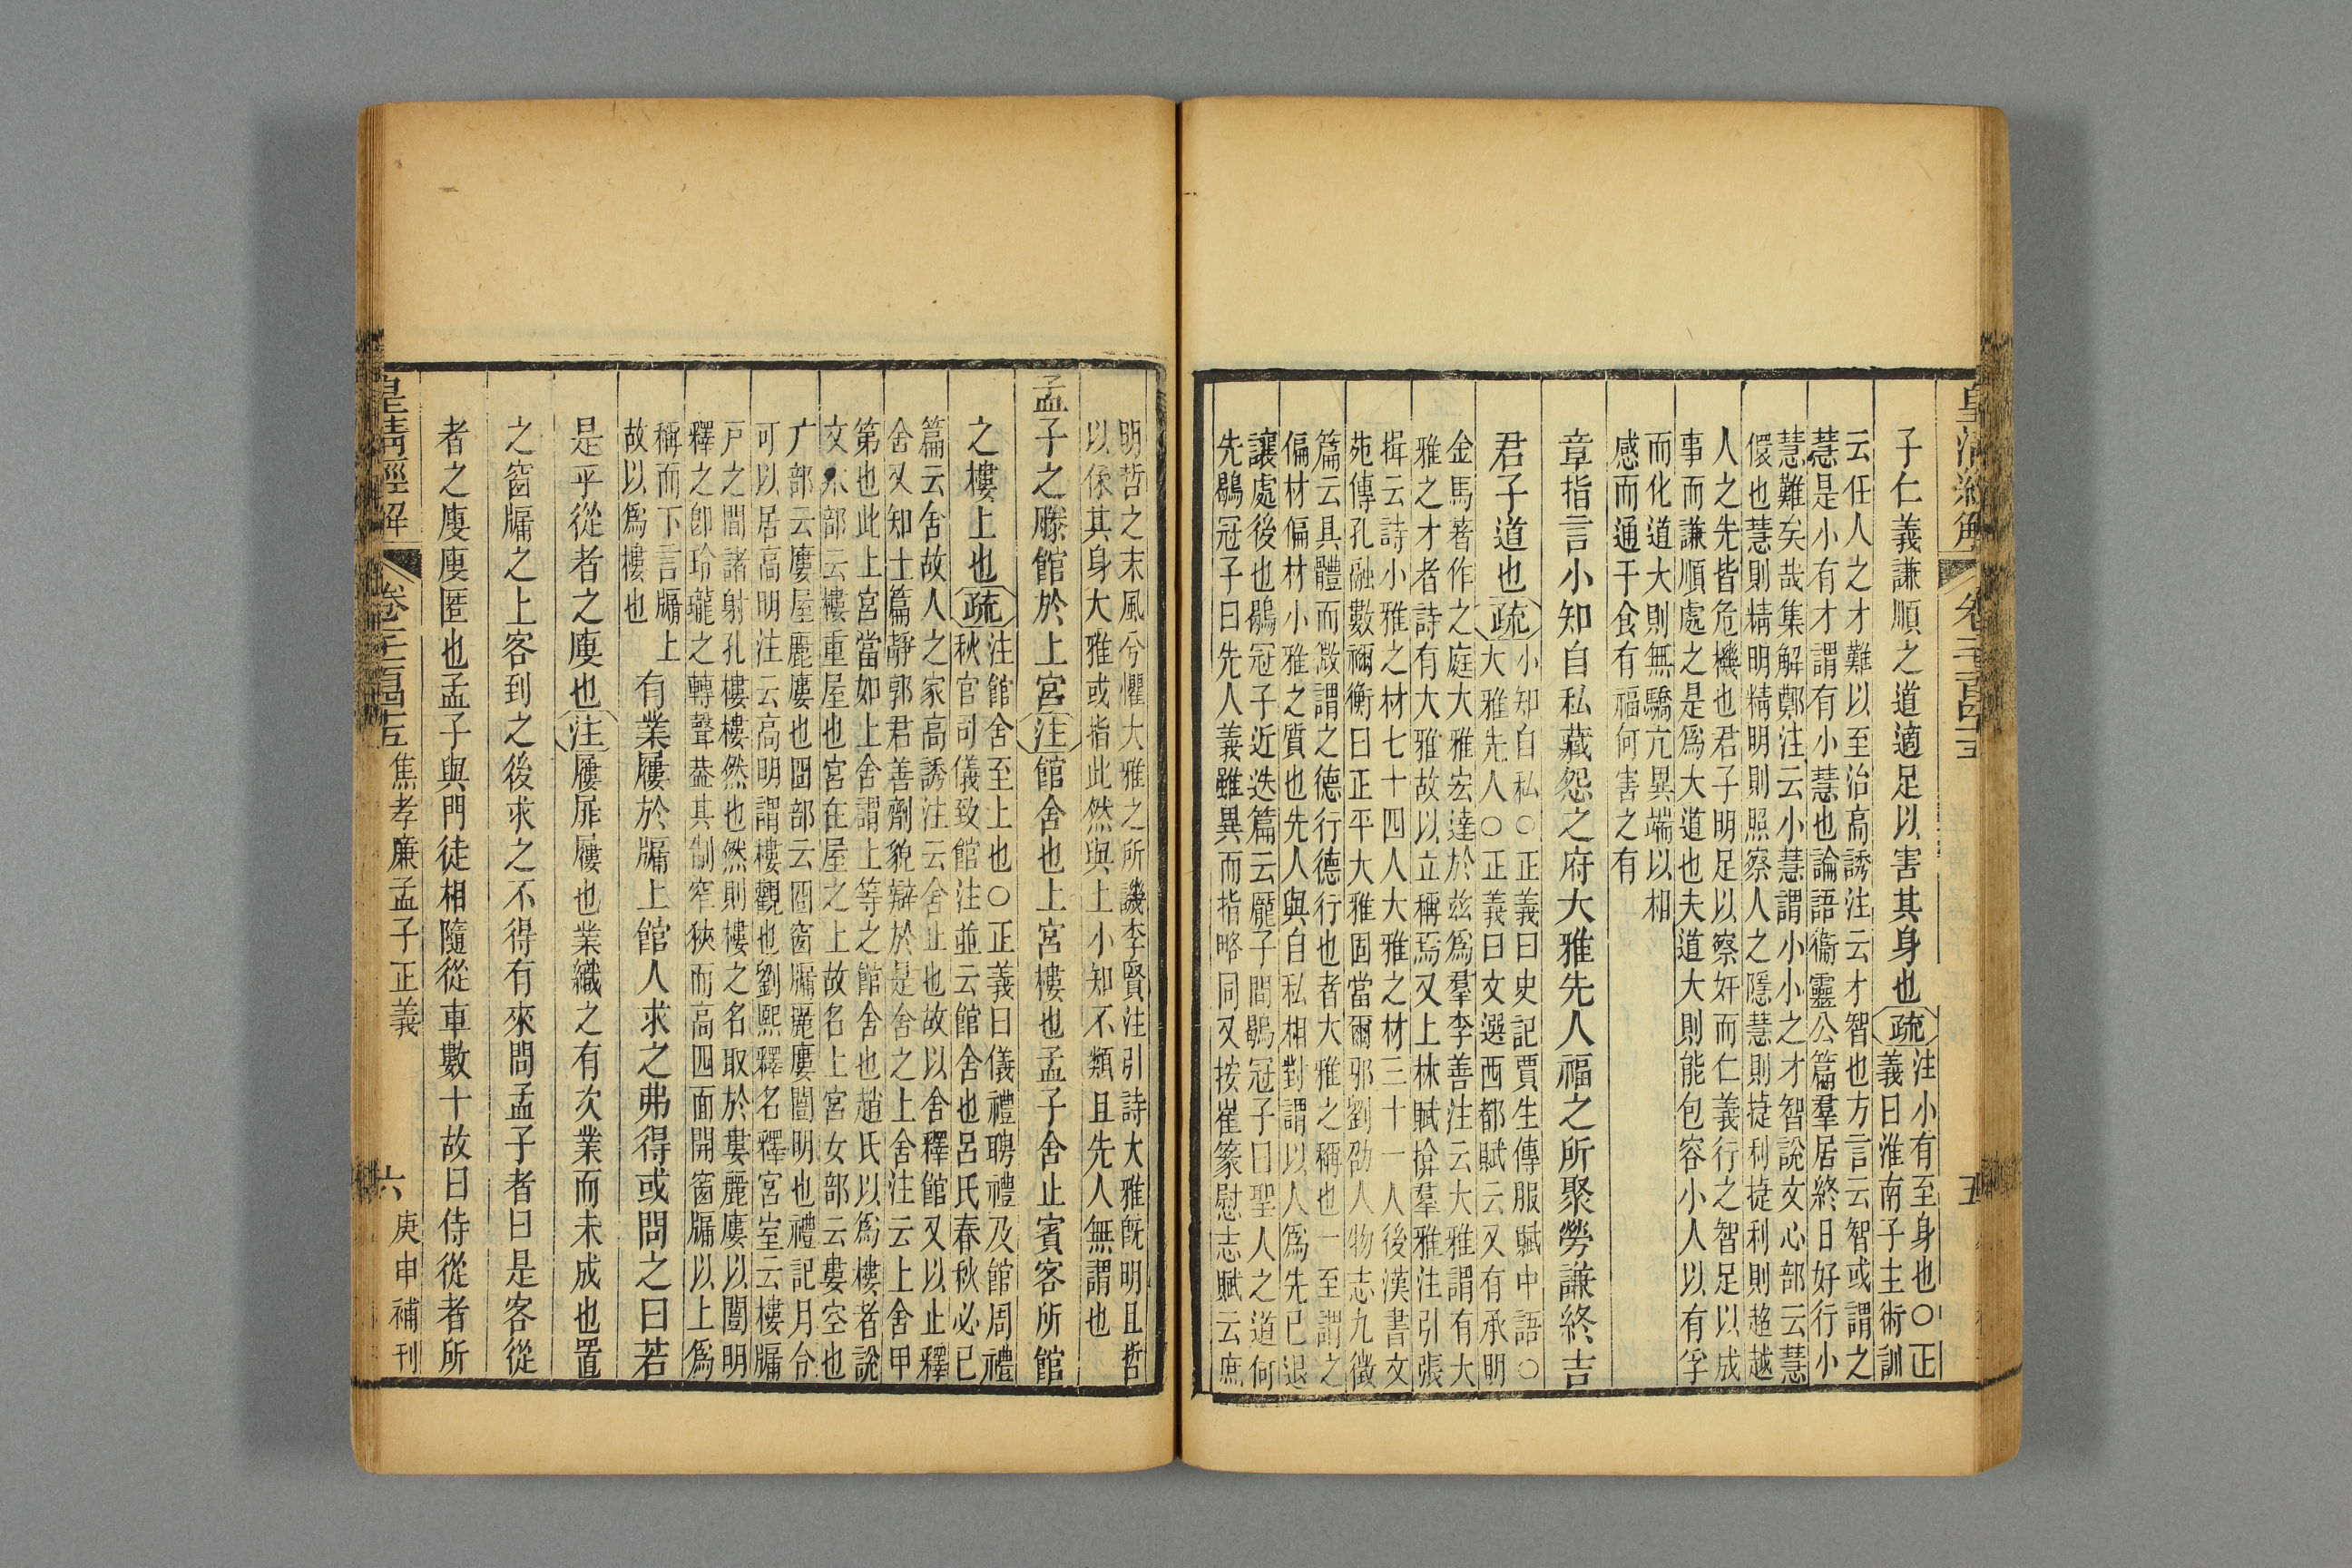 皇清經解
卷
五
子仁義謙順之道適足以害其身也疏
注小有至身也○正
義曰淮南子主術訓
云任人之才難以至治高誘注云才智也方言云智或謂之
慧是小有才謂有小慧也論語衞靈公篇羣居終日好行小
慧難矣哉集解鄭注云小慧謂小小之才智說文心部云慧
儇也慧則精明精明則照察人之隱慧則捷利捷利則超越
人之先皆危機也君子明足以察奸而仁義行之智足以成
事而謙順處之是爲大道也夫道大則能包容小人以有孚
而化道大則無驕亢異端以相
感而通于食有福何害之有
章指言小知自私藏怨之府大雅先人福之所聚勞謙終吉
君子道也疏
小知自私○正義曰史記賈生傳服賦中語○
大雅先人○正義曰文選西都賦云又有承明
金馬著作之庭大雅宏達於茲爲羣李善注云大雅謂有大
雅之才者詩有大雅故以立稱焉又上林賦揜羣雅注引張
揖云詩小雅之材七十四人大雅之材三十一人後漢書文
苑傳孔融數禰衡曰正平大雅固當爾邪劉劭人物志九徵
篇云具體而微謂之德行德行也者大雅之稱也一至謂之
偏材偏材小雅之質也先人與自私相對謂以人爲先已退
讓處後也鶡冠子近迭篇云龐子問鶡冠子曰聖人之道何
先鶡冠子曰先人義雖異而指略同又按崔篆慰志賦云庶
明哲之末風兮懼大雅之所譏李賢注引詩大雅旣明且哲
以保其身大雅或指此然與上小知不類且先人無謂也
孟子之滕館於上宮注館舍也上宮樓也孟子舍止賓客所館
之樓上也疏
注館舍至上也○正義曰儀禮聘禮及館周禮
秋官司儀致館注並云館舍也呂氏春秋必已
篇云舍故人之家高誘注云舍止也故以舍釋館又以止釋
舍又知士篇靜郭君善劑貌辯於是舍之上舍注云上舍甲
第也此上宮當如上舍謂上等之館舍也趙氏以爲樓者說
文木部云樓重屋也宮在屋之上故名上宮女部云婁空也
广部云廔屋麗廔也囧部云囧窗牖麗廔闓明也禮記月令
可以居高明注云高明謂樓觀也劉熙釋名釋宮室云樓牖
戸之間諸射孔樓樓然也然則樓之名取於婁麗廔以闓明
釋之卽玲瓏之轉聲葢其制窄狹而高四面開窗牖以上爲
稱而下言牖上
故以爲樓也
有業屨於牖上館人求之弗得或問之曰若
是乎從者之廋也注屨屝屨也業織之有次業而未成也置
之窗牖之上客到之後求之不得有來問孟子者曰是客從
者之廋廋匿也孟子與門徒相隨從車數十故曰侍從者所
皇清經解
卷
焦孝廉孟子正義
六
庚申補刊